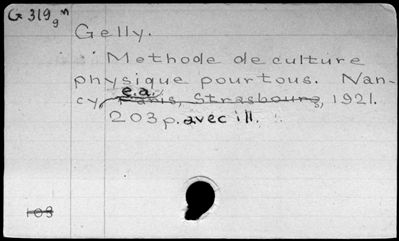 G 319 g n
Gelly.
Methode de culture
physique pour tous. Nan-
e.a.
cy, Paris, Strasbourg, 1921.
203 p. avec ill.
103